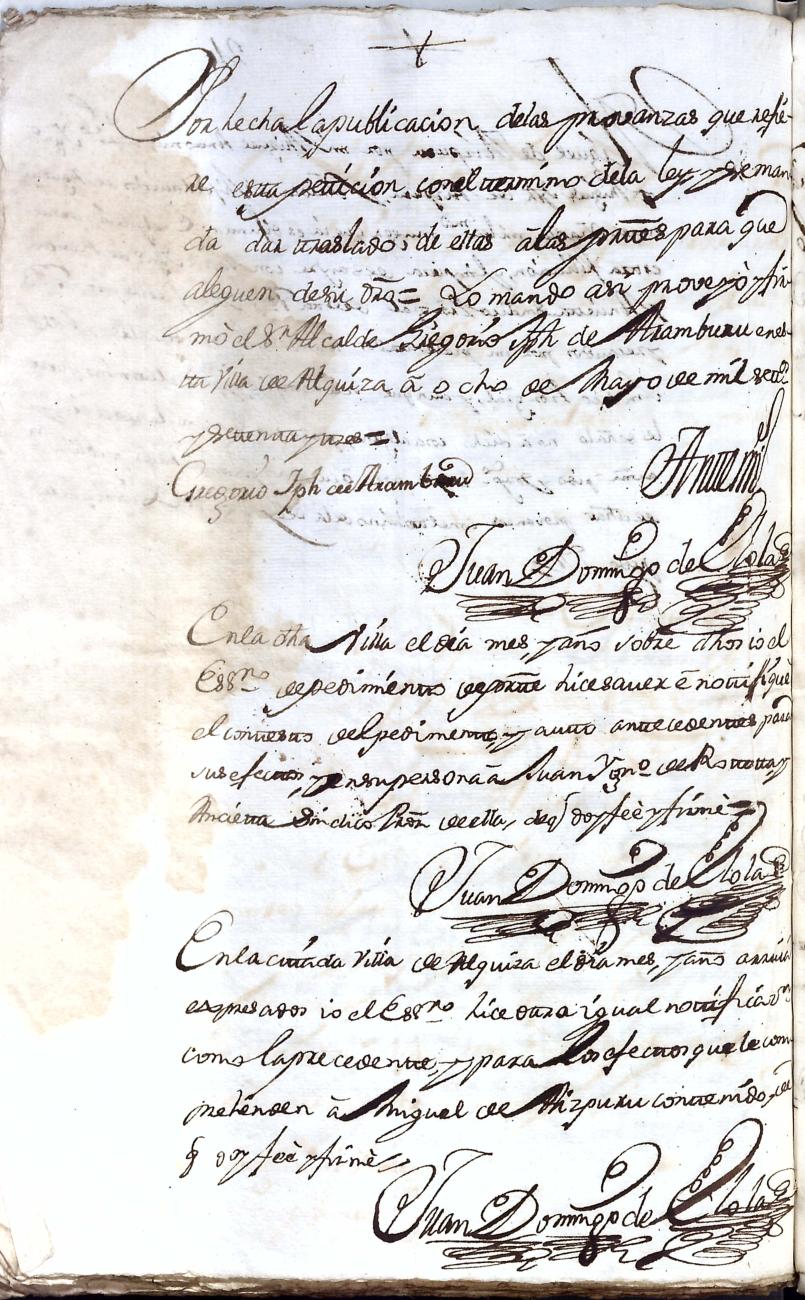 Por hecha la publicacion delas provanzas que refie-
re esta peticion con el termino dela ley, y se man
da dar traslado, de ellas â las prtes para que
aleguen de su dro= Lo mando asi proveyò y fir
mò el Sr. Alcalde Gregorio Jph de Aramburu en es-
ta Villa de Alquiza â ocho de Mayo de mil sette
y settenta y tres=
Gregorio Jph de Aramburu Antemi
Juan Domingo de Lola
En la dha Villa el dia mes, y año sobre dhos io el
Essno. de pedimento de prte hice saver è notifiquè
el contesto del pedimento, y auto antecedentes para
sus efectos, y en su persona â Juan Ygno. de
Ancieta Sindico Pror de ella, de q doy feè y firmè=
Juan Domingo de Lola
En la citada Villa de Alquiza el dia mes, y año arriva
espresados io el Essno. hice otra igual notificazn.
como la precedente, y para los efectos que le com
prehenden â Miguel de Aizpuru contenido, de
q doy feè y firmè=
Juan Domingo de Lola